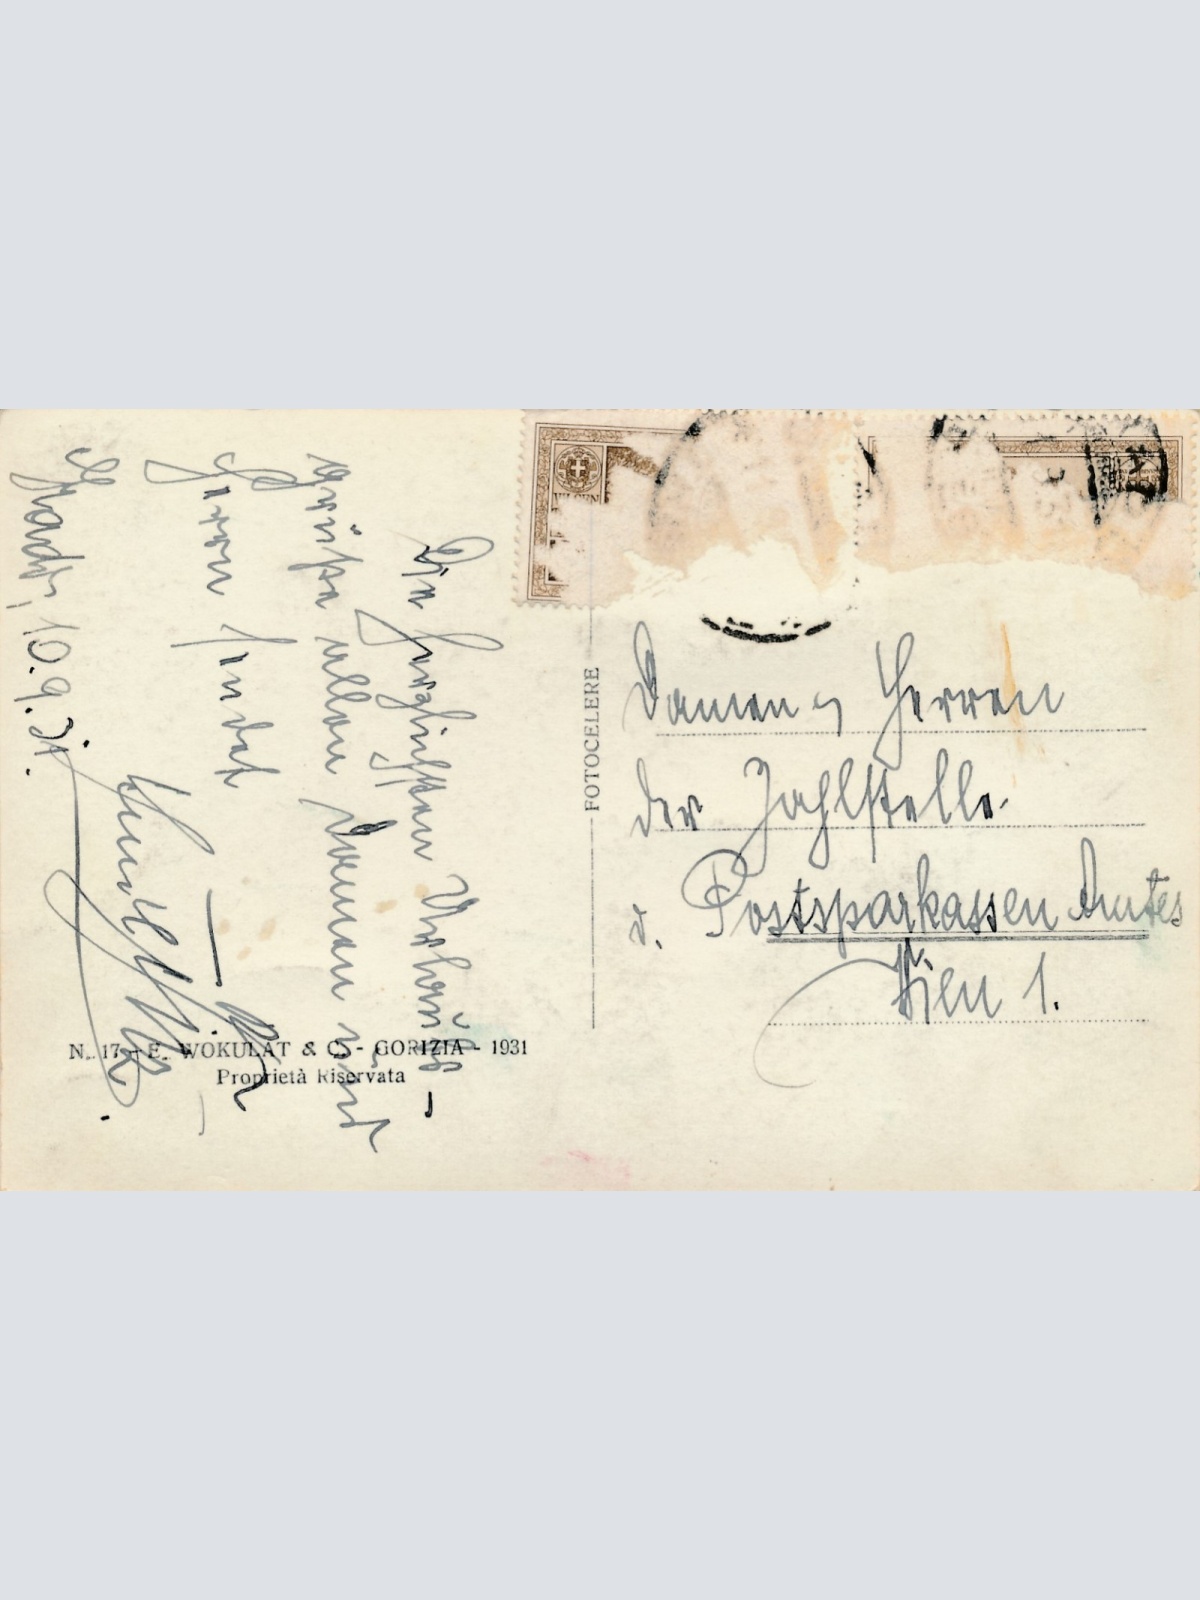 Die herzlichsten Urlaubs-
grüße allen Damen und
Herren sendet
Grado, 10.9.31.
N. 17 - E. WOKULAT & C. - GORIZIA - 1931
Proprietà Riservata
FOTOCELERE
Damen u Herren
der Zahlstelle
d. Postsparkassen Amtes
Wien 1.